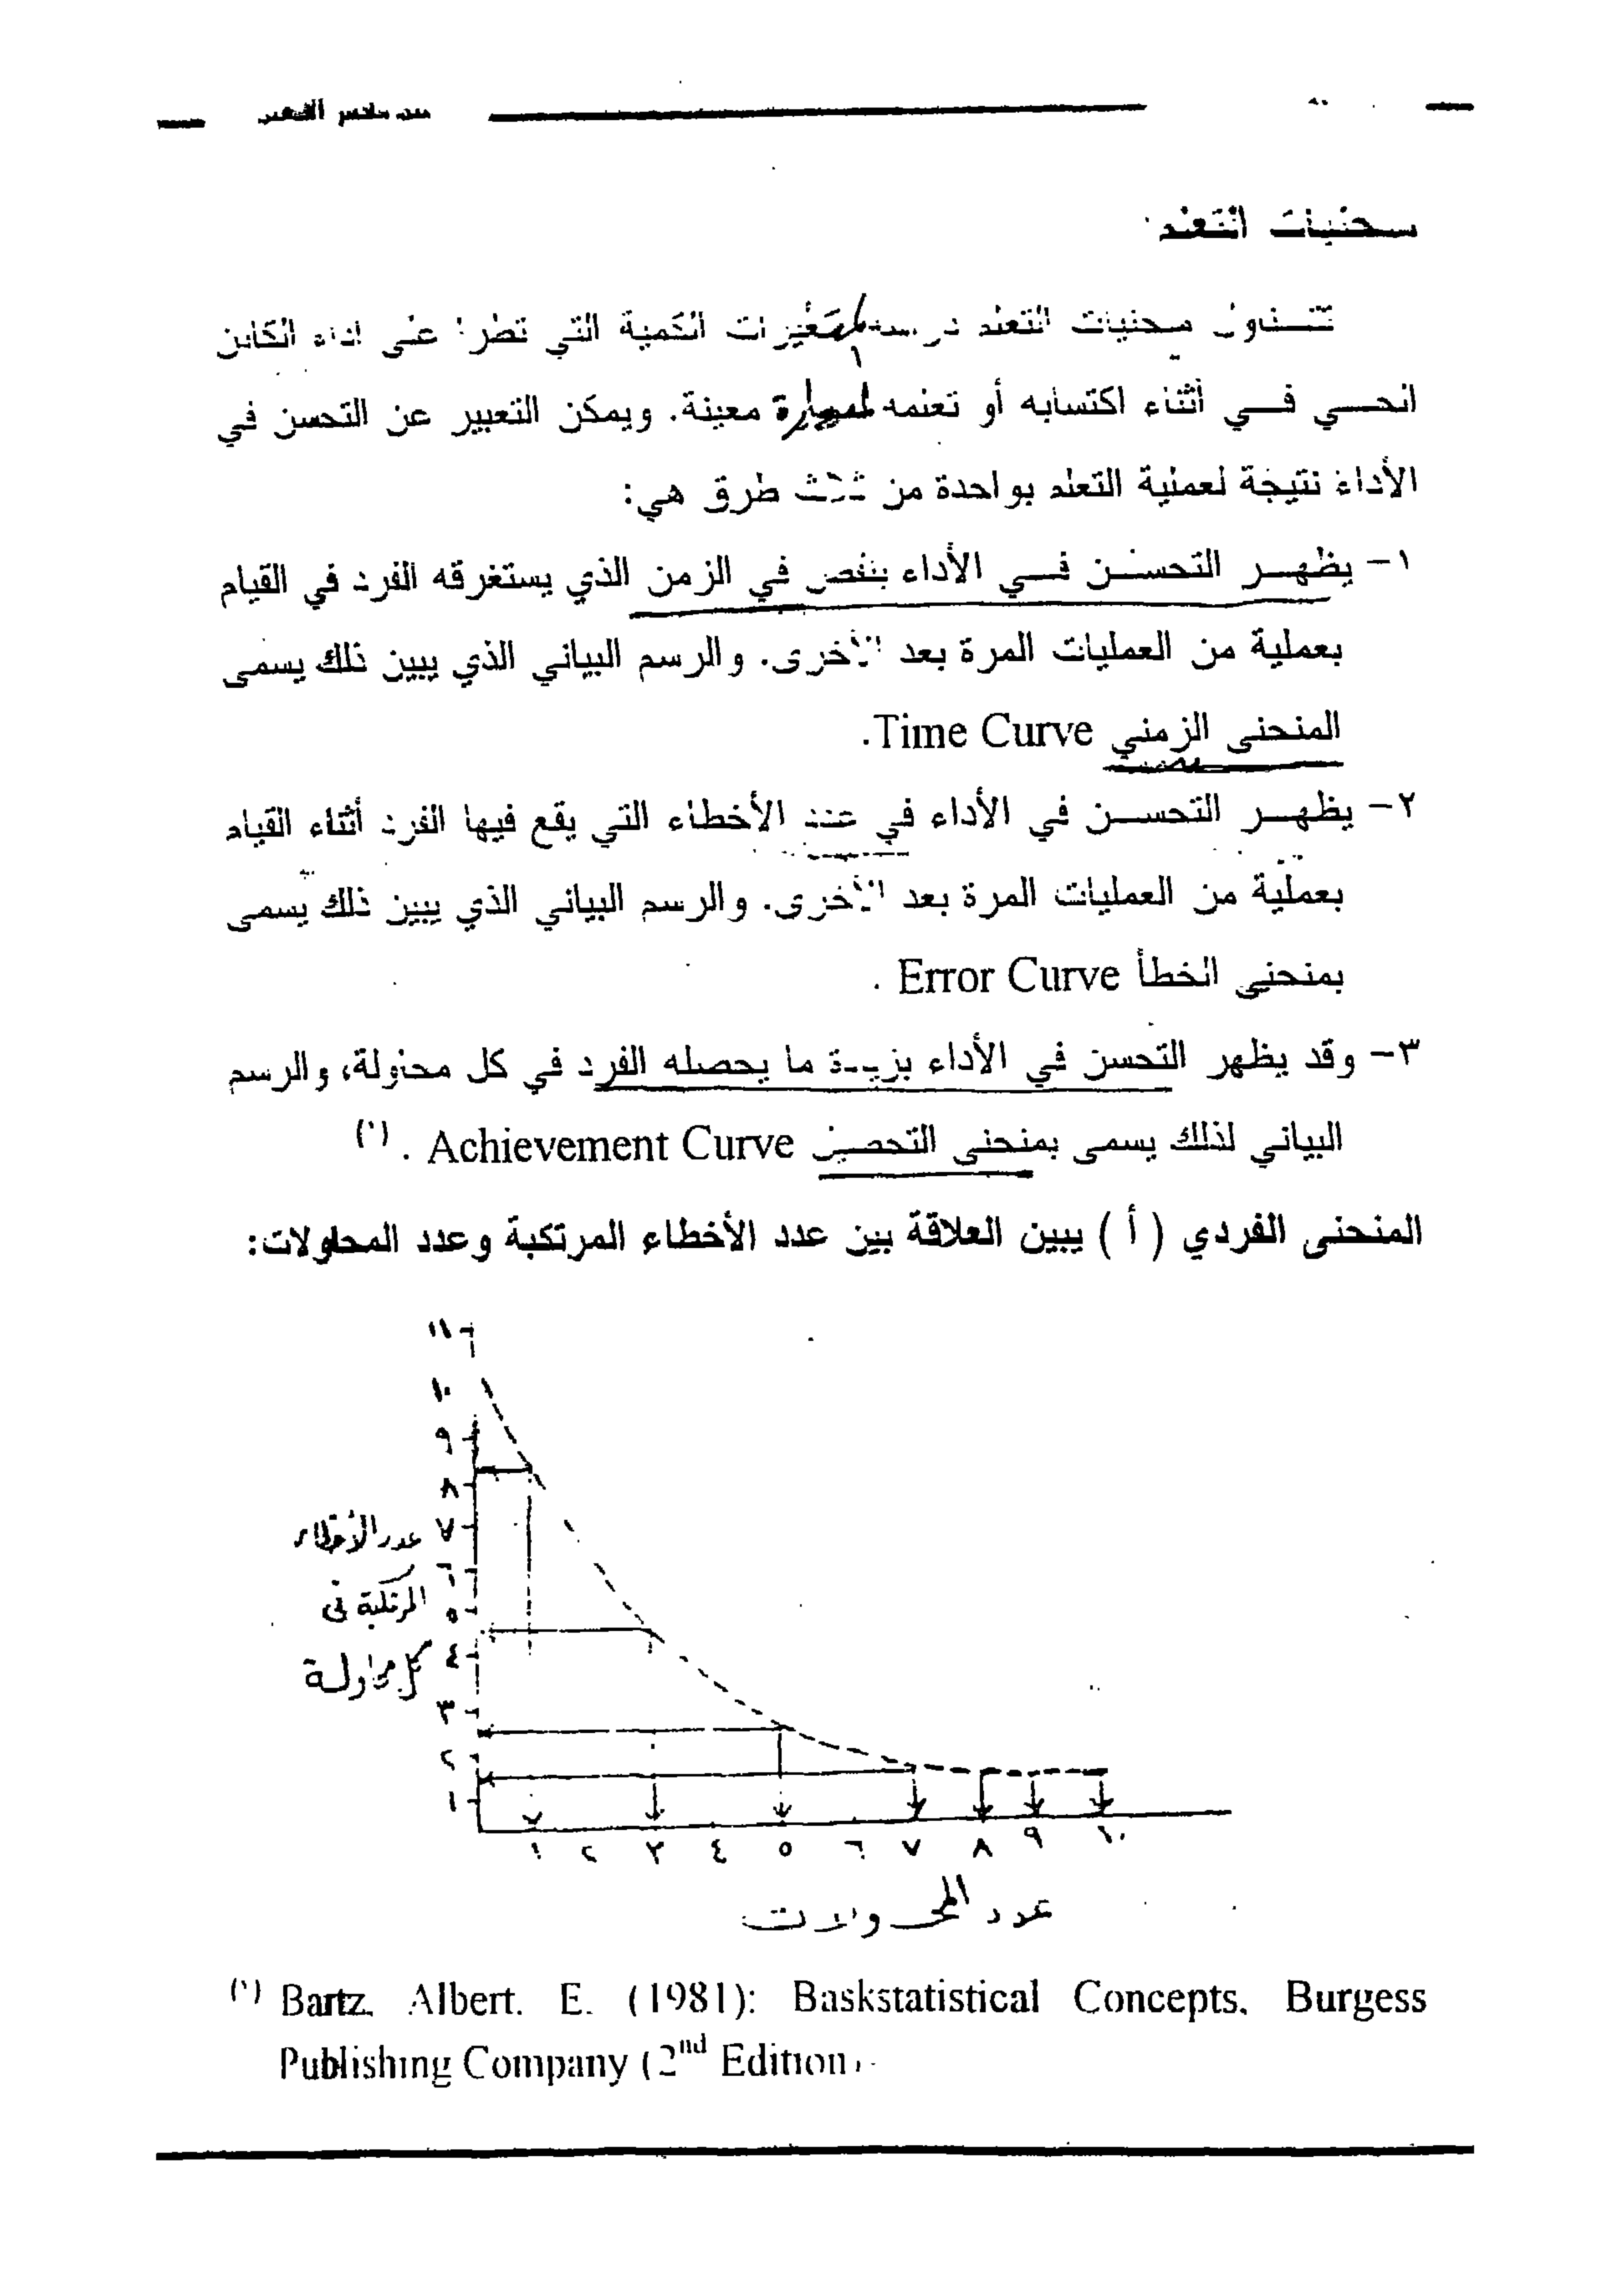 منحنيات التعلم
تتناول منحنيات التعلم دراسة المتغيرات الكمية التي تطرأ على أداء الكائن
الحي في أثناء اكتسابه أو تعلمه لمهارة معينة. ويمكن التعبير عن التحسن في
الأداء نتيجة لعملية التعلم بواحدة من ثلاث طرق هي:
١- يظهر التحسن في الأداء بنقص في الزمن الذي يستغرقه الفرد في القيام
بعملية من العمليات المرة بعد الأخرى. والرسم البياني الذي يبين ذلك يسمى
المنحنى الزمني Time Curve.
٢- يظهر التحسن في الأداء في عدد الأخطاء التي يقع فيها الفرد أثناء القيام
بعملية من العمليات المرة بعد الأخرى. والرسم البياني الذي يبين ذلك يسمى
بمنحنى الخطأ Error Curve .
٣- وقد يظهر التحسن في الأداء بزيادة ما يحصله الفرد في كل محاولة، والرسم
البياني لذلك يسمى بمنحنى التحصيل Achievement Curve . (١)
المنحنى الفردي ( أ ) يبين العلاقة بين عدد الأخطاء المرتكبة وعدد المحاولات:
١١
١٠
٩
٨
٧
٦
٥
٤
٣
٢
١
عدد الأخطاء
المرتكبة في
كل محاولة
١ ٢ ٣ ٤ ٥ ٦ ٧ ٨ ٩ ١٠
عدد المحاولات
(١) Bartz, Albert. E. (1981): Baskstatistical Concepts, Burgess
Publishing Company (2nd Edition).